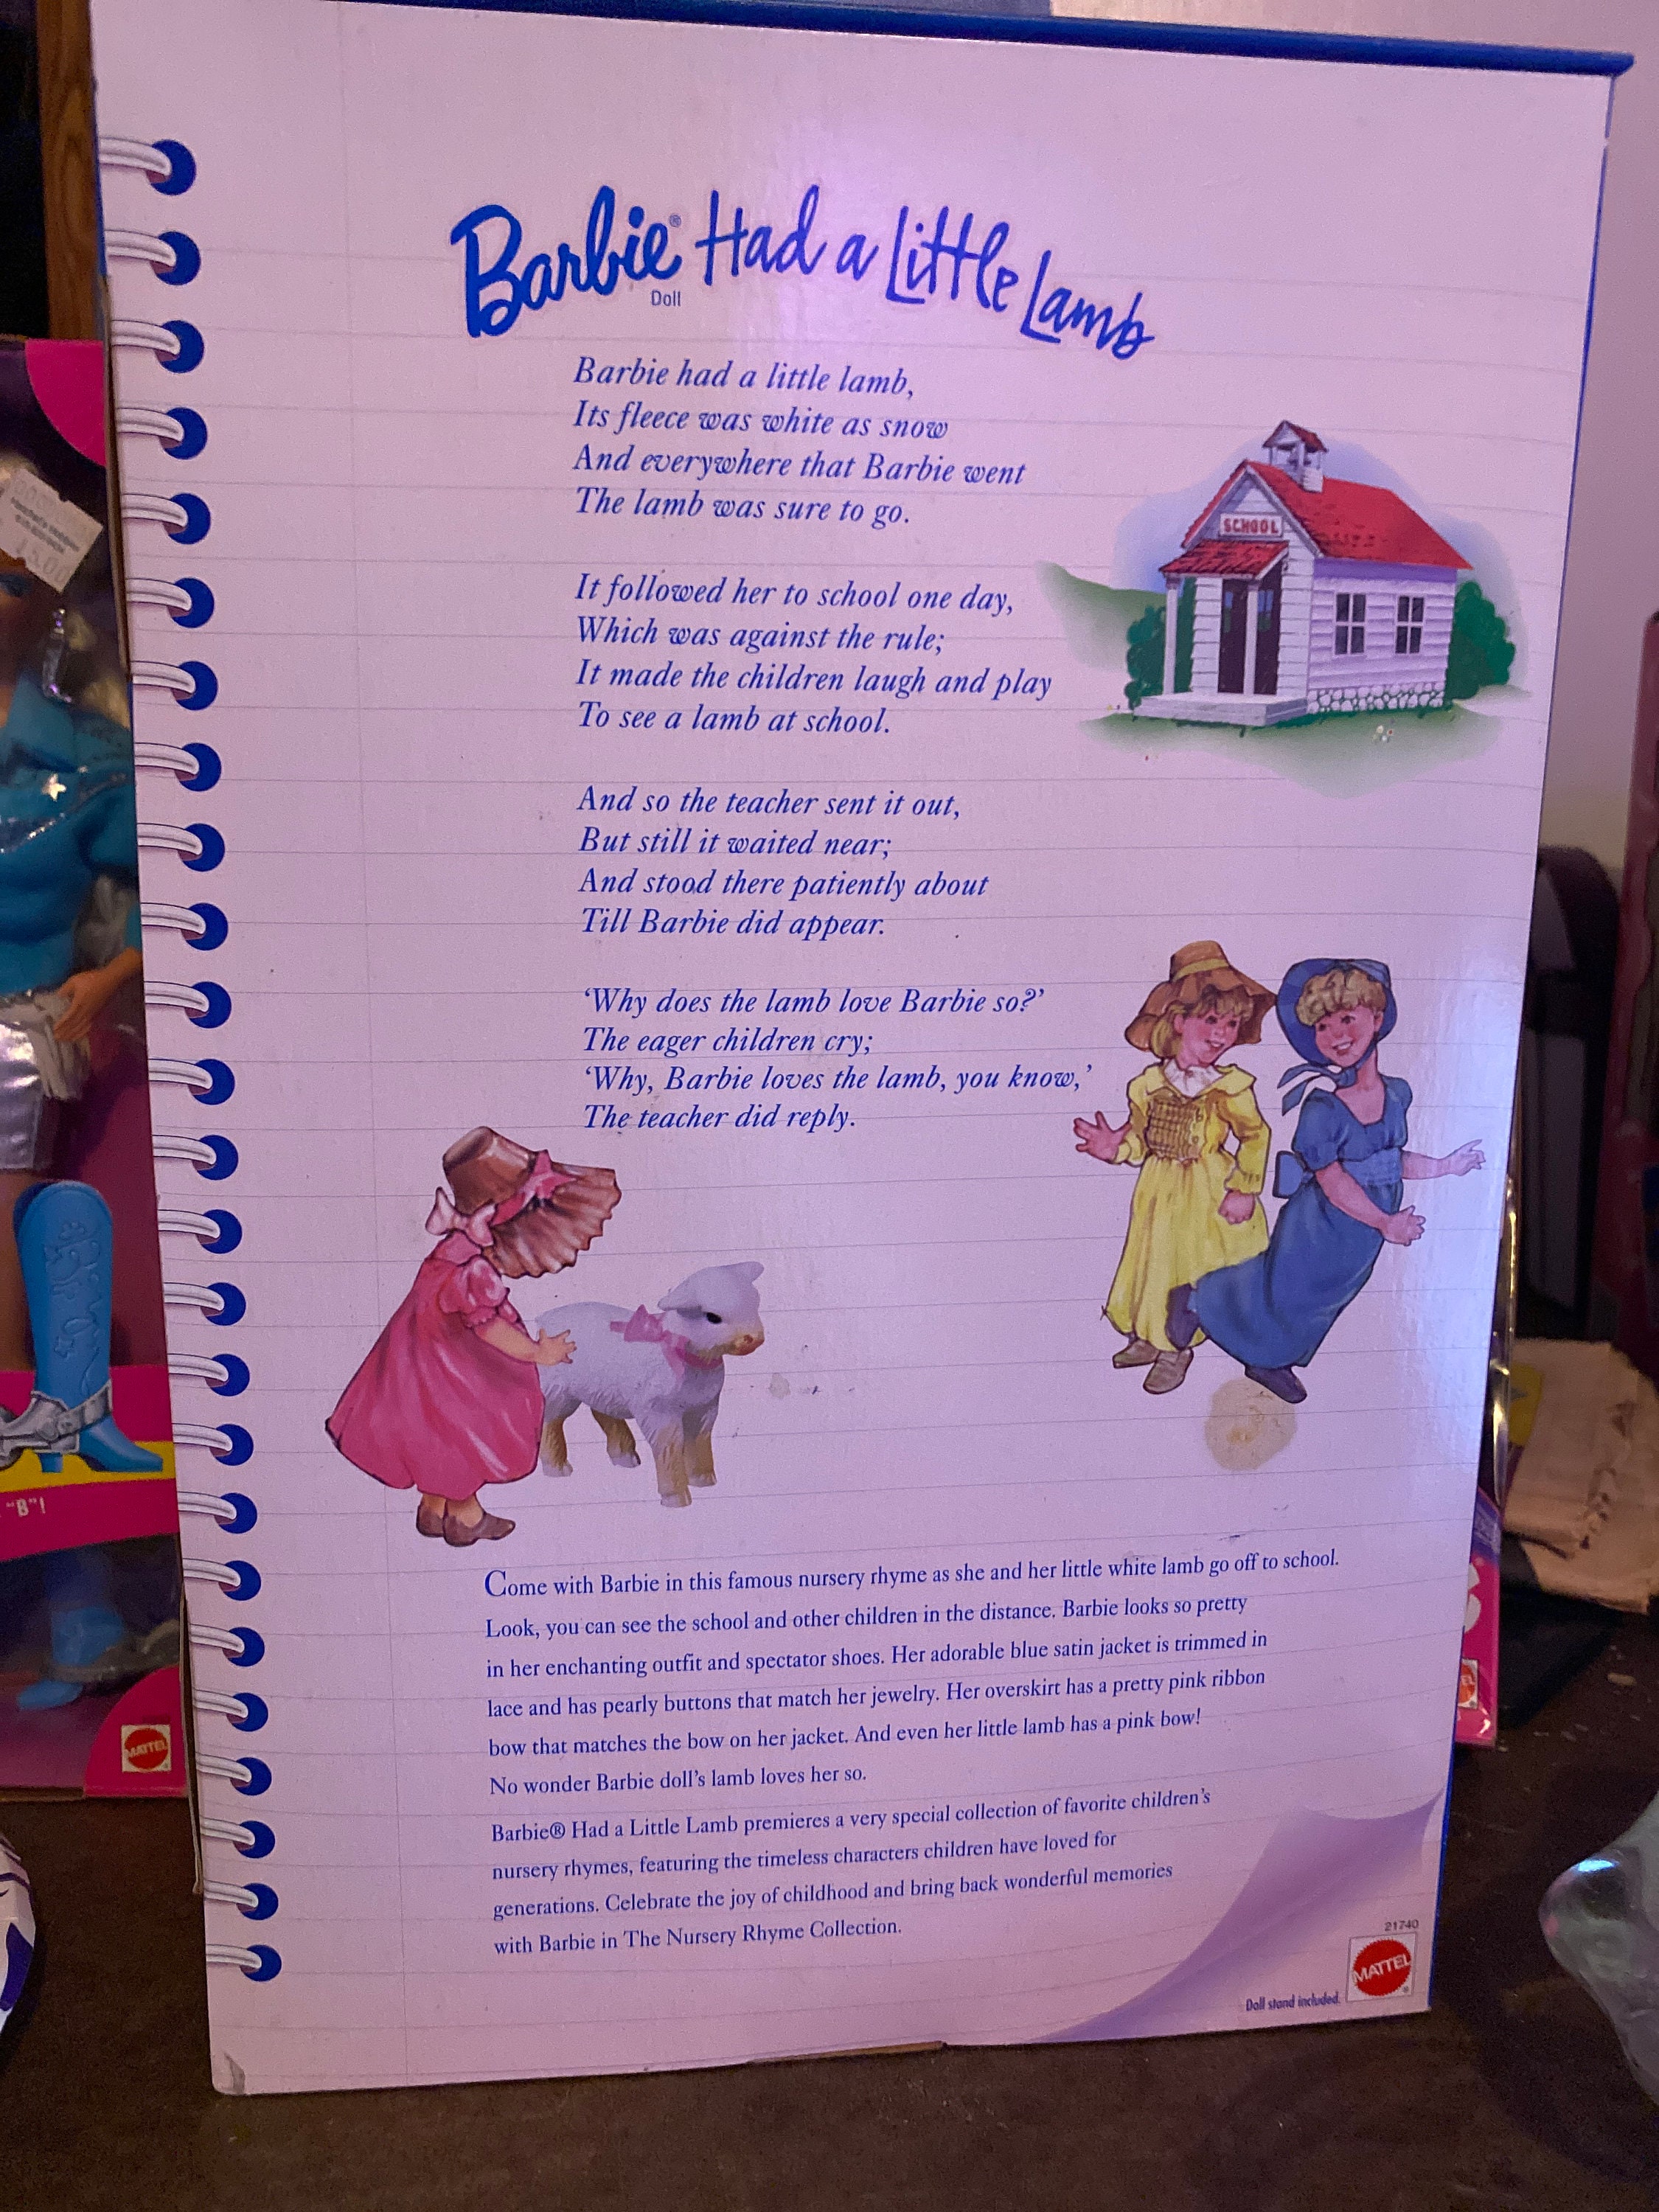 Barbie® Had a Little Lamb
Doll
Barbie had a little lamb,
Its fleece was white as snow
And everywhere that Barbie went
The lamb was sure to go.
It followed her to school one day,
Which was against the rule;
It made the children laugh and play
To see a lamb at school.
SCHOOL
And so the teacher sent it out,
But still it waited near;
And stood there patiently about
Till Barbie did appear.
‘Why does the lamb love Barbie so?’
The eager children cry;
‘Why, Barbie loves the lamb, you know,’
The teacher did reply.
Come with Barbie in this famous nursery rhyme as she and her little white lamb go off to school.
Look, you can see the school and other children in the distance. Barbie looks so pretty
in her enchanting outfit and spectator shoes. Her adorable blue satin jacket is trimmed in
lace and has pearly buttons that match her jewelry. Her overskirt has a pretty pink ribbon
bow that matches the bow on her jacket. And even her little lamb has a pink bow!
No wonder Barbie doll’s lamb loves her so.
Barbie® Had a Little Lamb premieres a very special collection of favorite children’s
nursery rhymes, featuring the timeless characters children have loved for
generations. Celebrate the joy of childhood and bring back wonderful memories
with Barbie in The Nursery Rhyme Collection.
21740
MATTEL
Doll stand included.
"B"!
MATTEL